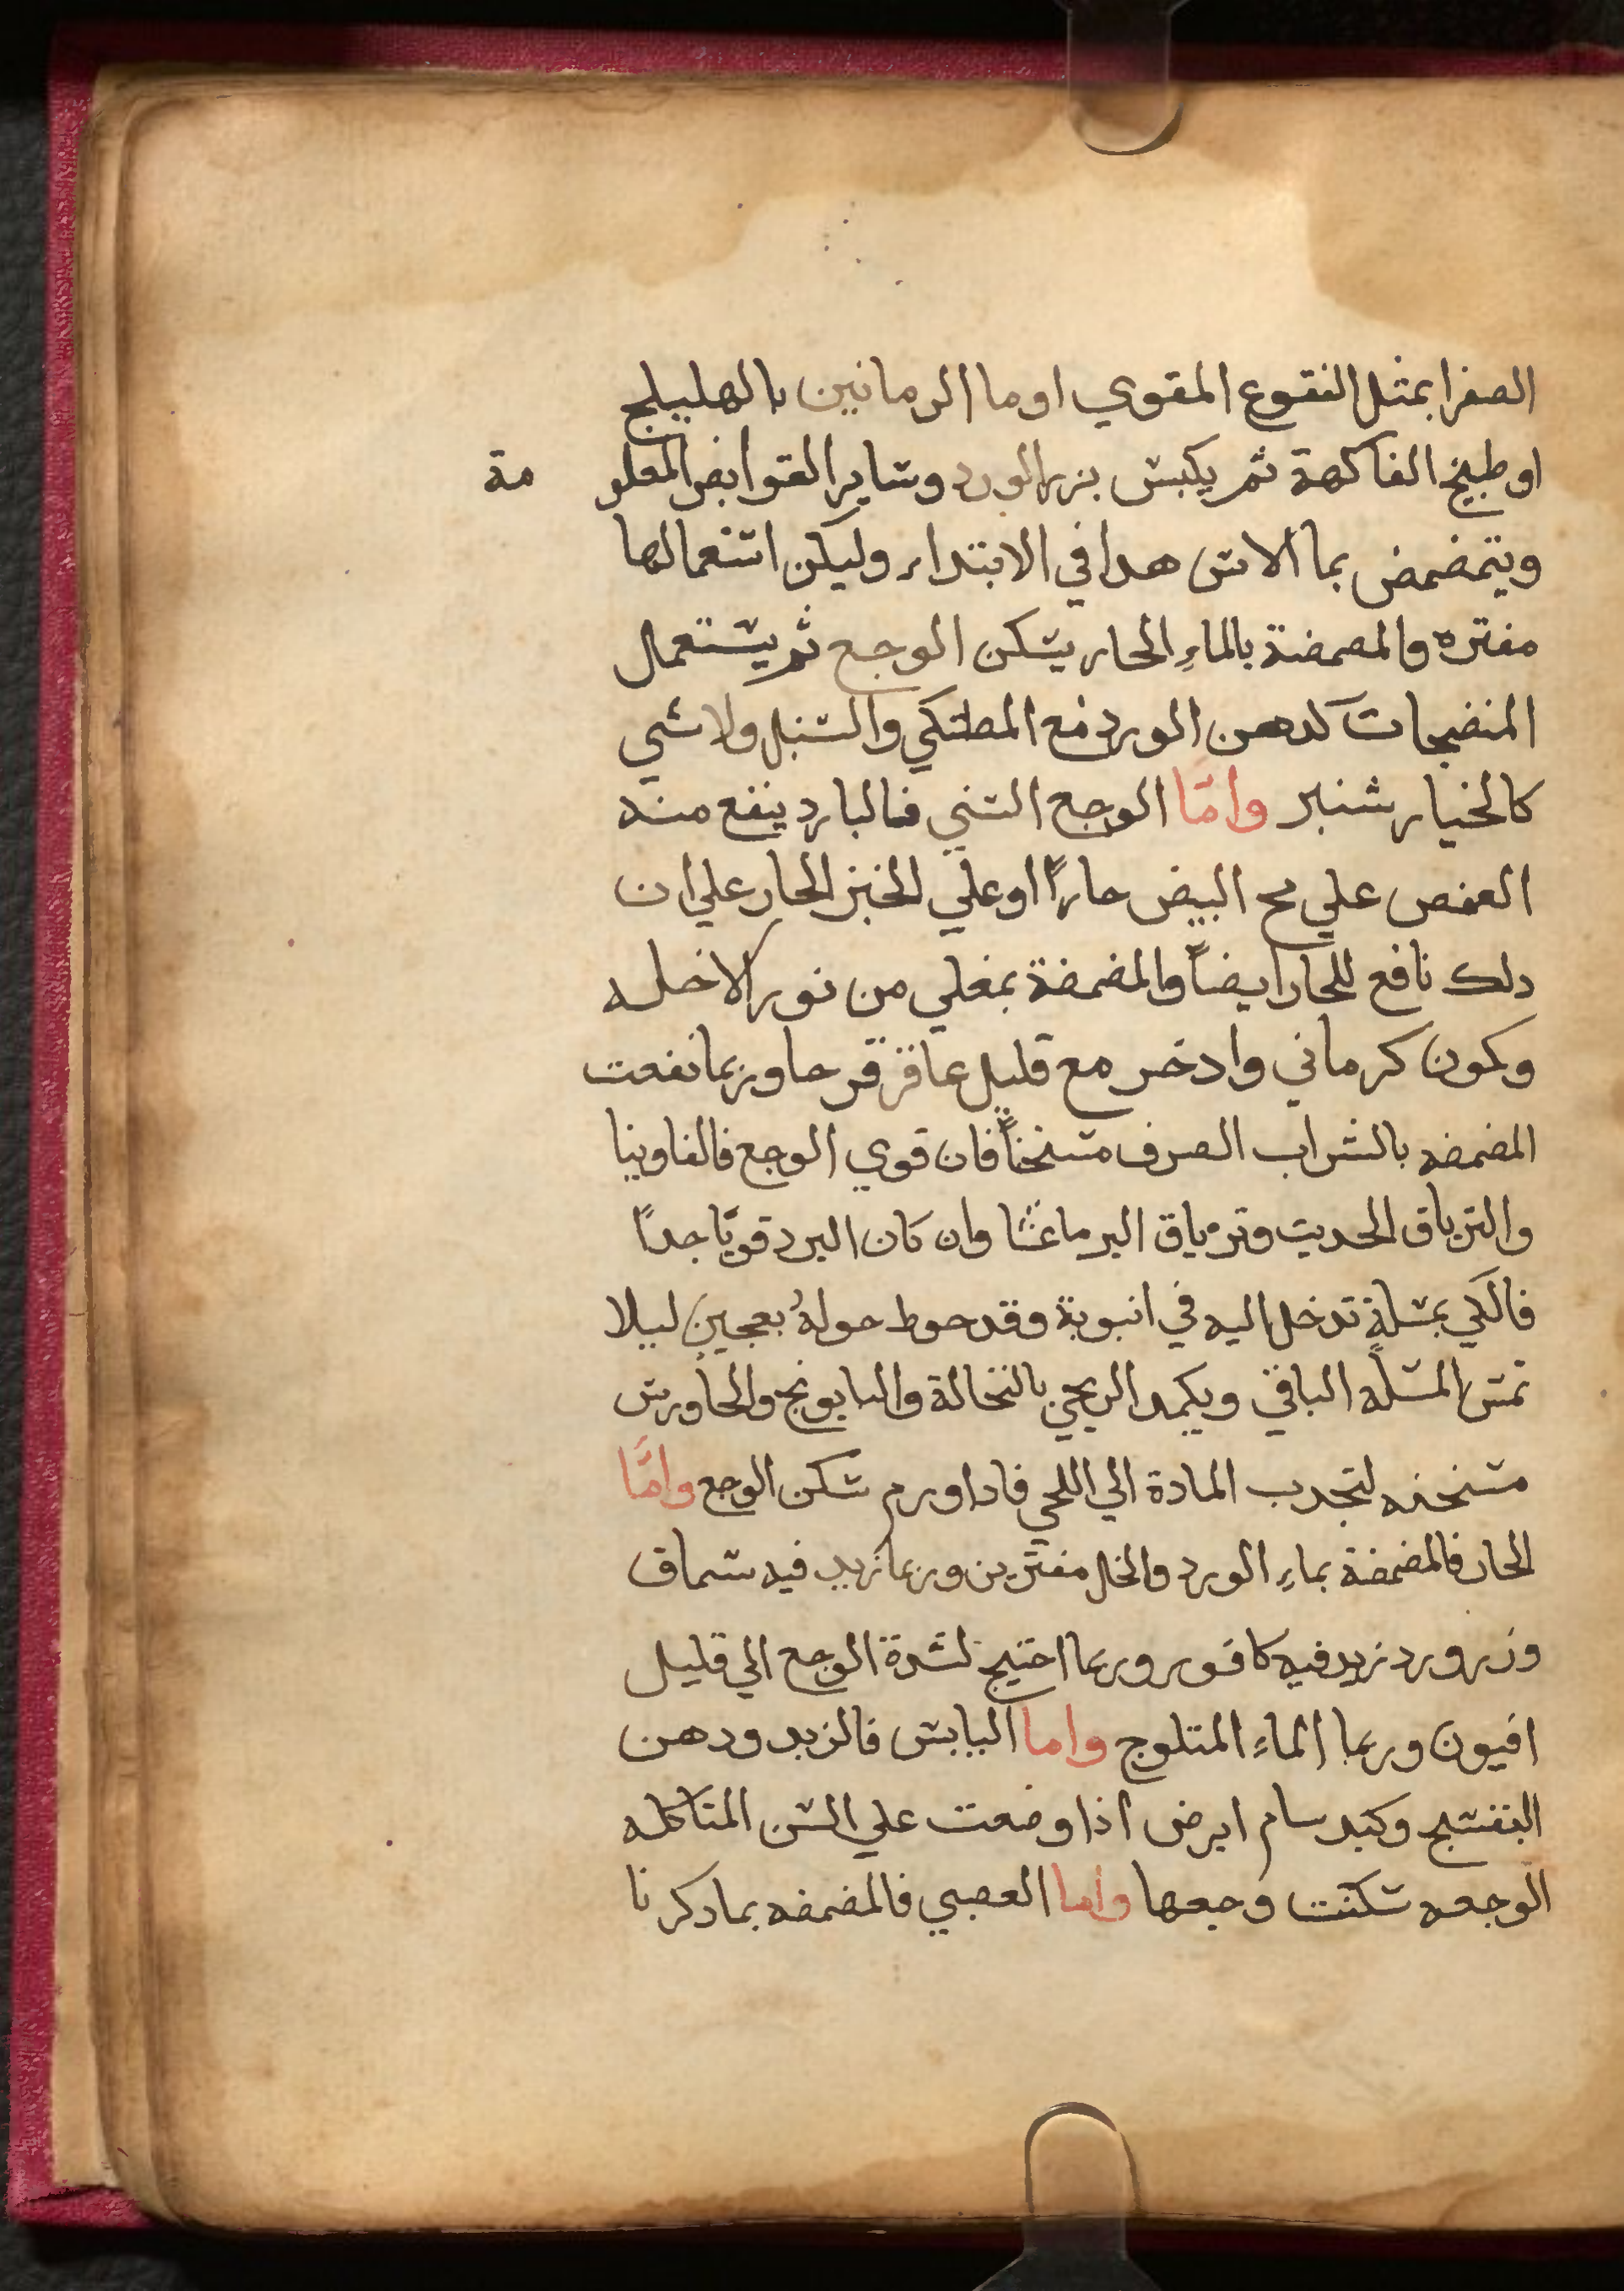 الصفرا بمثل النقوع المقوي او ما الرمانين بالهليلج
او طبيخ الفاكهة ثم يكبس بزر الورد وساير القوابض المعلو مة
ويتمضمض بما الاس هدا في الابتداء وليكن استعمالها
مفتره والمصمضة بالماءِ الحار يسكن الوجع ثم يستعمال
المنضجات كدهن الورد مع المصطكي والسنبل ولا شي
كالخيار شنبر وامّا الوجع السني فالبارد ينفع منه
العفص علي مح البيض حاراً او علي الخبز الحار علي ان
دلك نافع للحار ايضاً والمضمضة بمغلي من نور الاخله
وكمون كرماني وادخر مع قليل عاقر قرحا وربما نفعت
المضمضه بالشراب الصرف مسخناً فان قوي الوجع فالفاوينا
والترياق الحديث وترياق البرماعثا وان كان البرد قويّا جداً
فالكي بمسلةٍ تدخل اليه في انبوبة وقد حوط حولهُ بعجينٍ ليلا
تمس المسله الباقي ويكمد الريحي بالنخالة والبابونج والجاورس
مسخنه لتجدب المادة الي اللحي فادا ورم سكن الوجع وامَّا
الحار فالمضمضة بماءِ الورد والخل مفترين وربما زيد فيه سماق
وزر ورد زيد فيه كافور وربما احتيج لشدة الوجع الي قليل
افيون وربما الماءِ المتلوج واما اليابس فالزبد ودهن
البنفسج وكبد سام ابرص اذا وضعت علي السن المتاكله
الوجعه سكنت وجعها واما العصبي فالمضمضه بما دكرنا